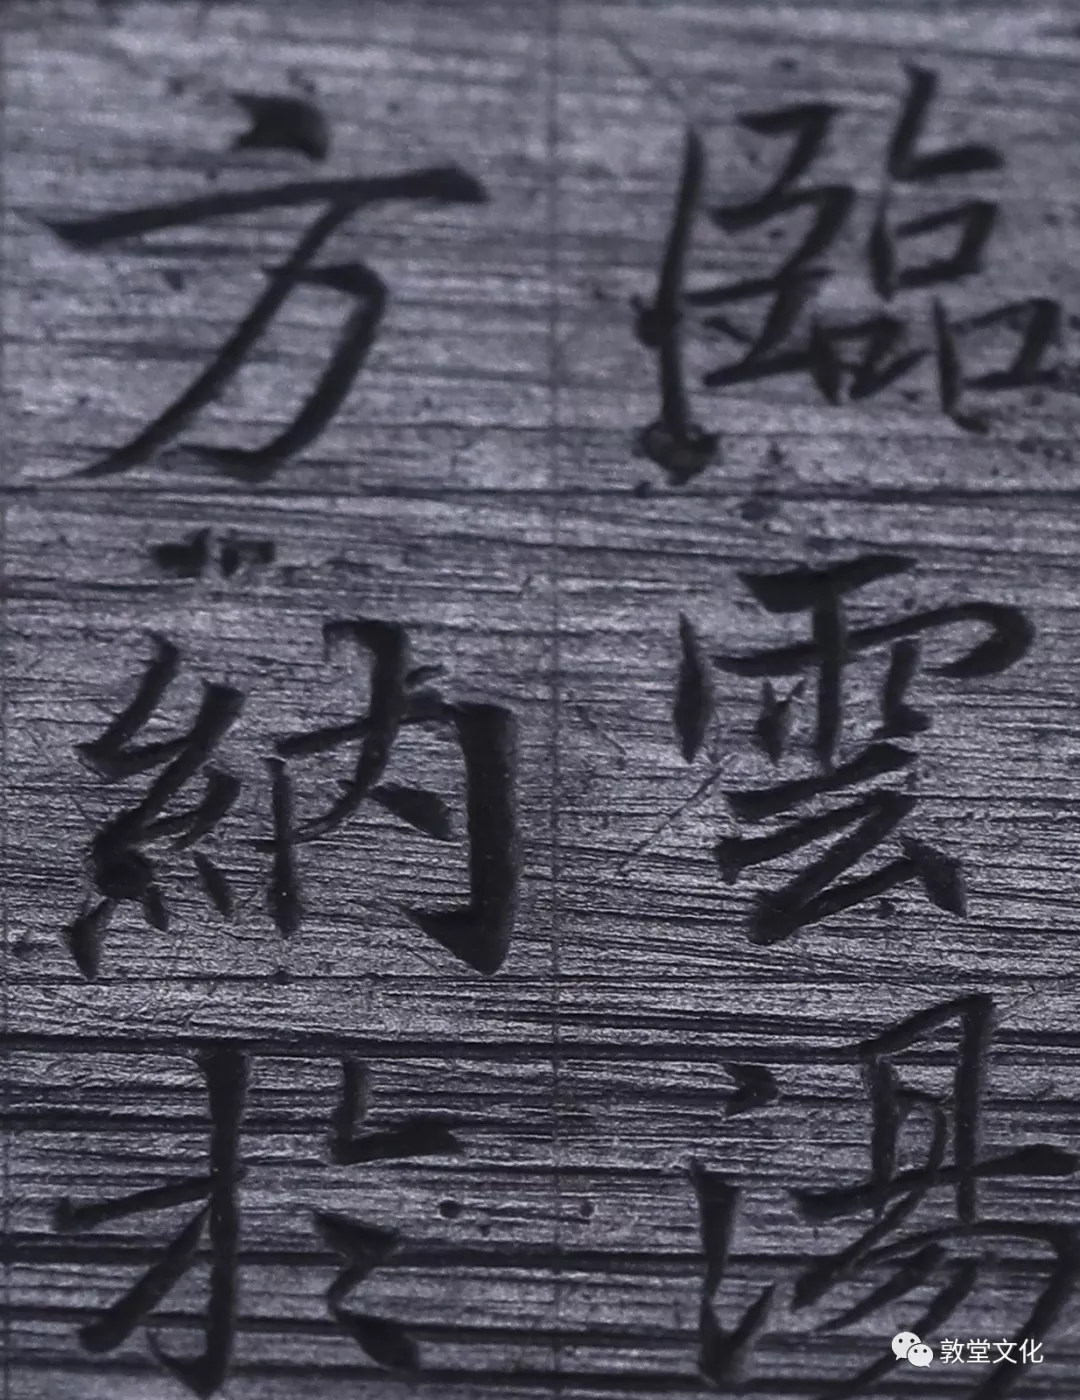 臨雲湯
方納於
敦堂文化